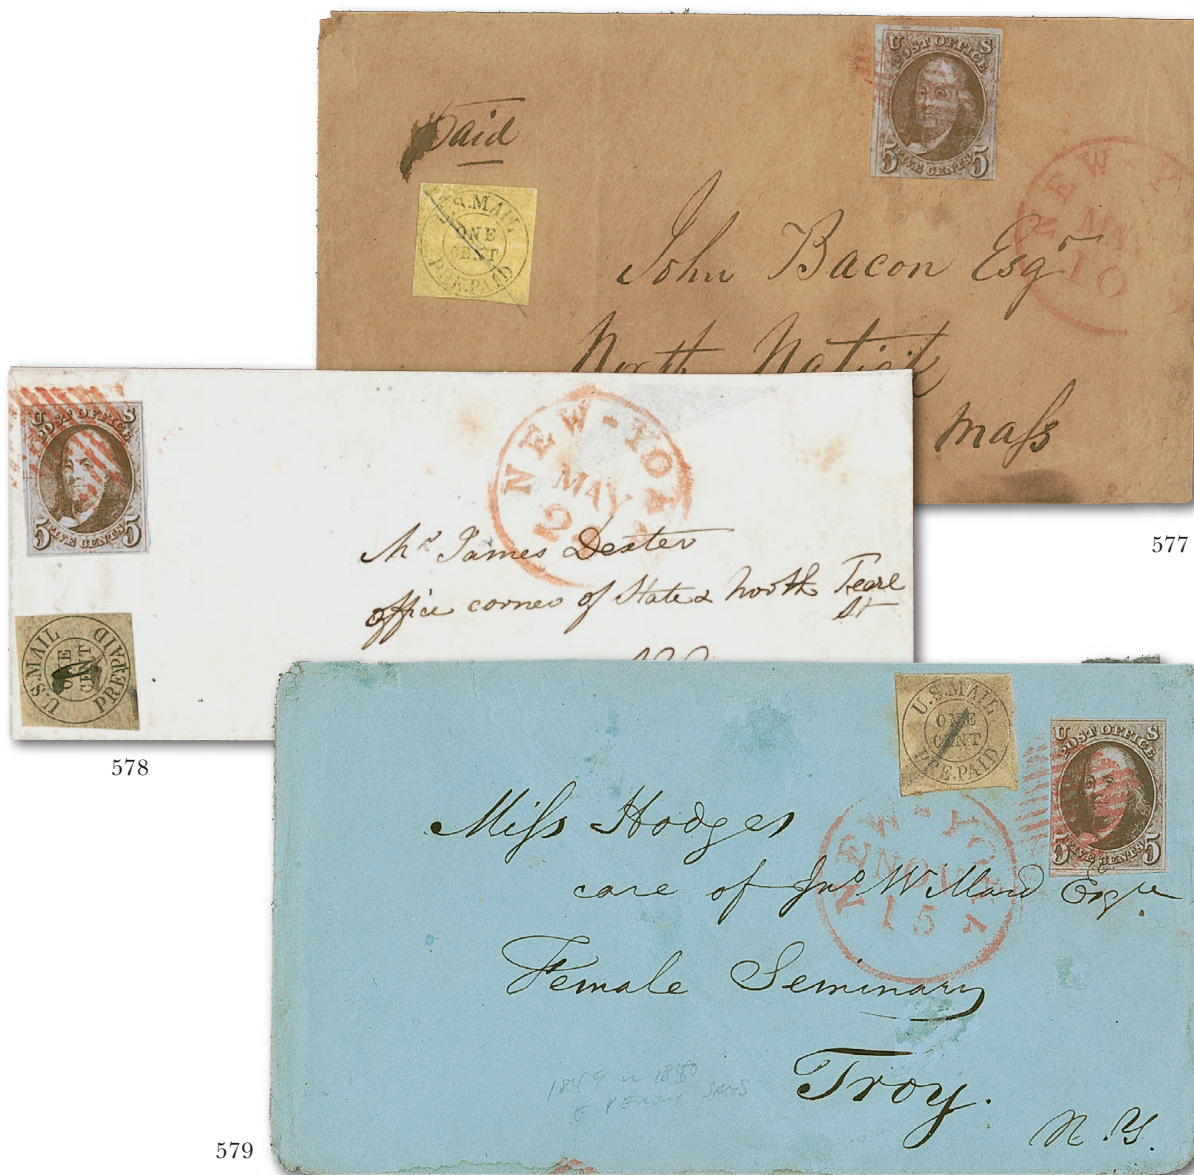 U S
POST OFFICE
5 FIVE CENTS 5
Paid
U.S. MAIL
ONE
CENT
PRE.PAID
NEW-Y
MAY
10
John Bacon Esqr
North Natick
Mass
577
U S
POST OFFICE
5 FIVE CENTS 5
NEW-YORK
MAY
Mr James Dexter
office corner of State & North Pearl
St
U.S. MAIL
ONE
CENT
PREPAID
578
U.S. MAIL
ONE
CENT
PRE.PAID
U S
POST OFFICE
5 FIVE CENTS 5
NEW-YORK
NOV
15
Miss Hodges
care of Jno Willard Esqre
Female Seminary
Troy.
N.Y.
579